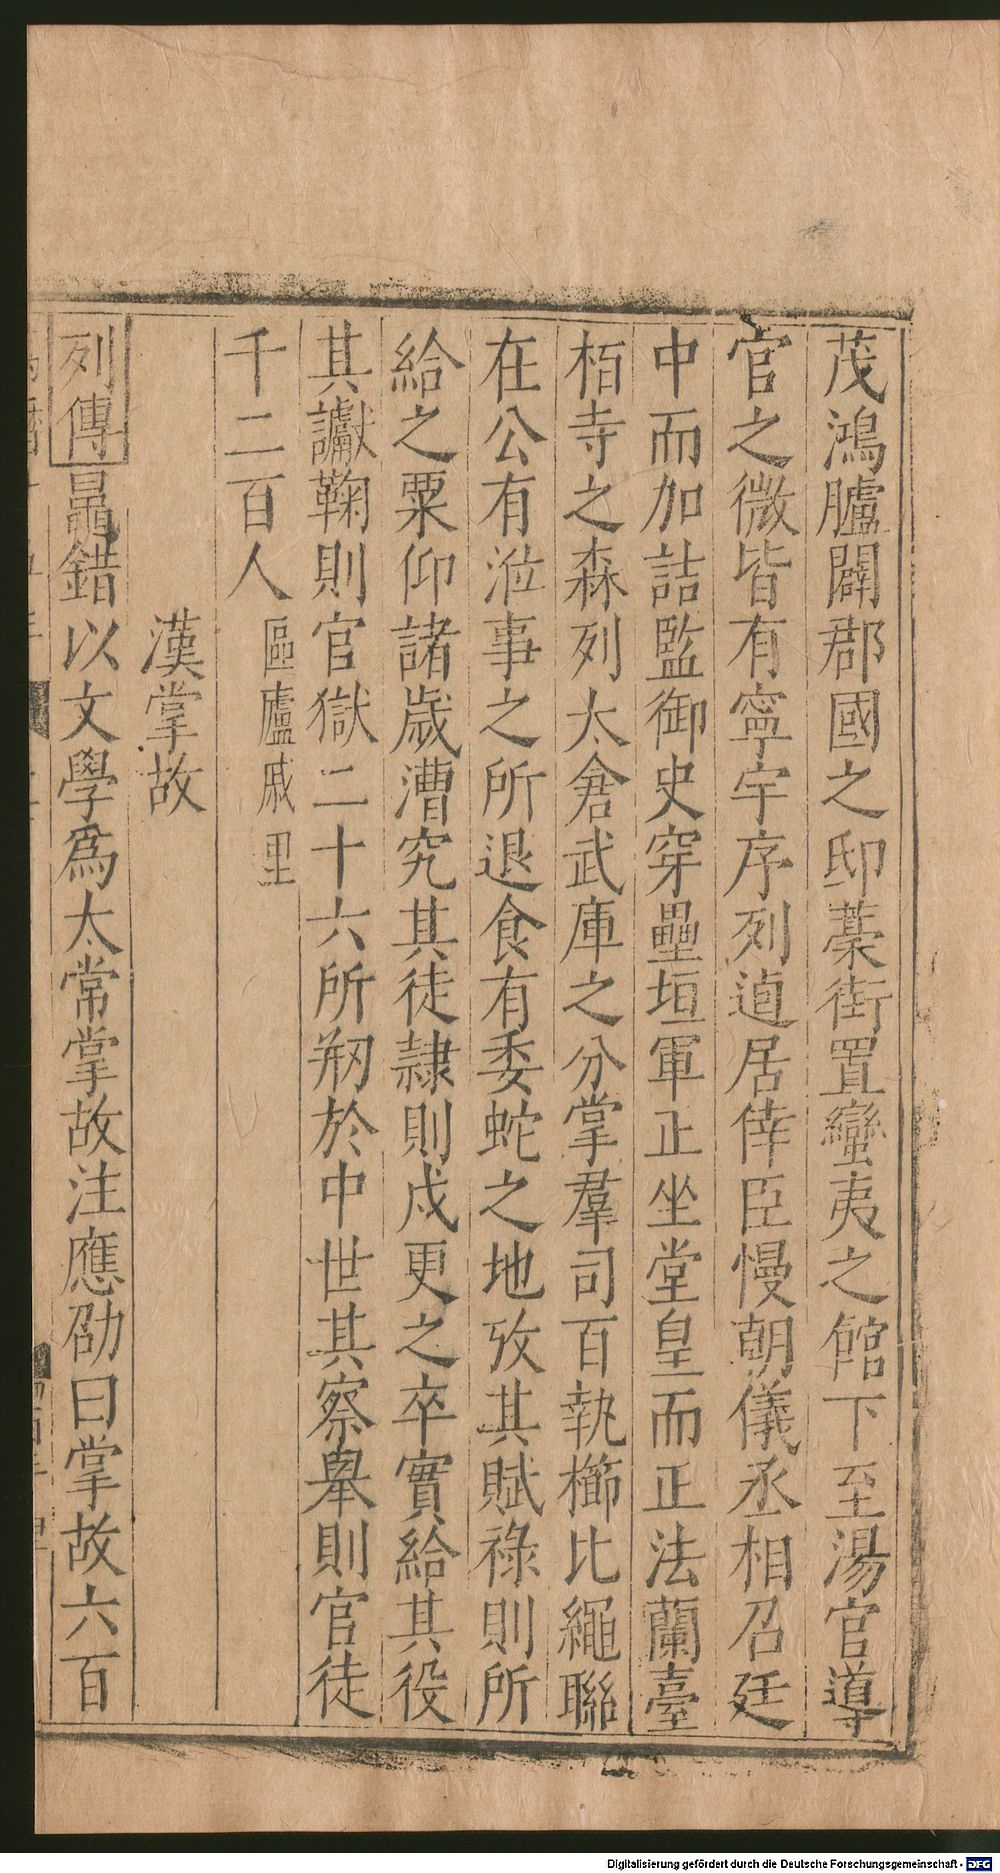 茂鴻臚闢郡國之邸藁街置蠻夷之館下至湯官導
官之微皆有寧宇序列逌居倖臣慢朝儀丞相召廷
中而加詰監御史穿壘垣軍正坐堂皇而正法蘭臺
栢寺之森列太倉武庫之分掌羣司百執櫛比繩聯
在公有涖事之所退食有委蛇之地攷其賦祿則所
給之粟仰諸歲漕究其徒隷則戍更之卒實給其役
其讞鞠則官獄二十六所剏於中世其察舉則官徒
千二百人區廬戚里
漢掌故
列傳鼂錯以文學爲太常掌故注應劭曰掌故六百
Digitalisierung gefördert durch die Deutsche Forschungsgemeinschaft - DFG